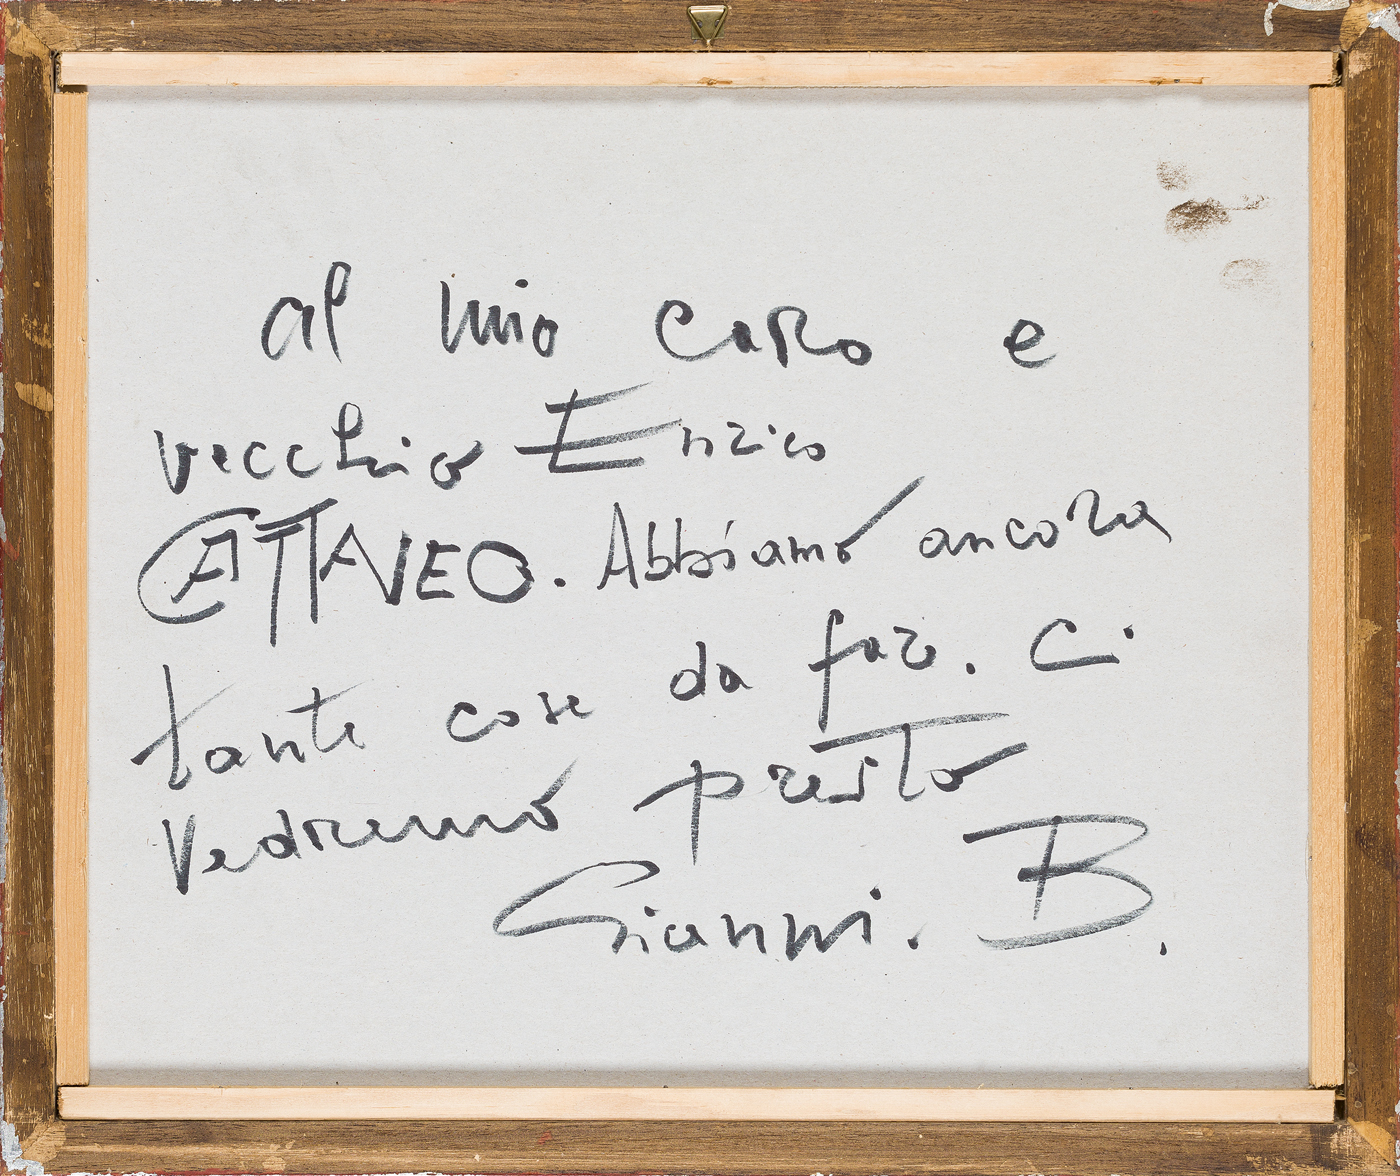 al mio caro e
vecchio Enrico
CATTANEO. Abbiamo ancora
tante cose da fare. Ci
vedremo presto
Gianni. B.